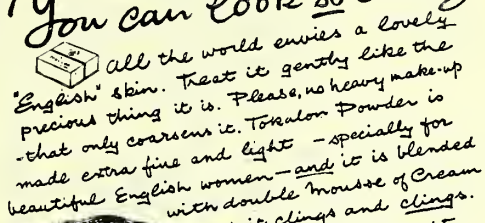 You can look so
all the world envies a lovely
"English" skin. Treat it gently like the
precious thing it is. Please, no heavy make-up
-that only coarsens it. Tokalon Powder is
made extra fine and light - specially for
beautiful English women - and it is blended
with double Mousse of Cream
it clings and clings.